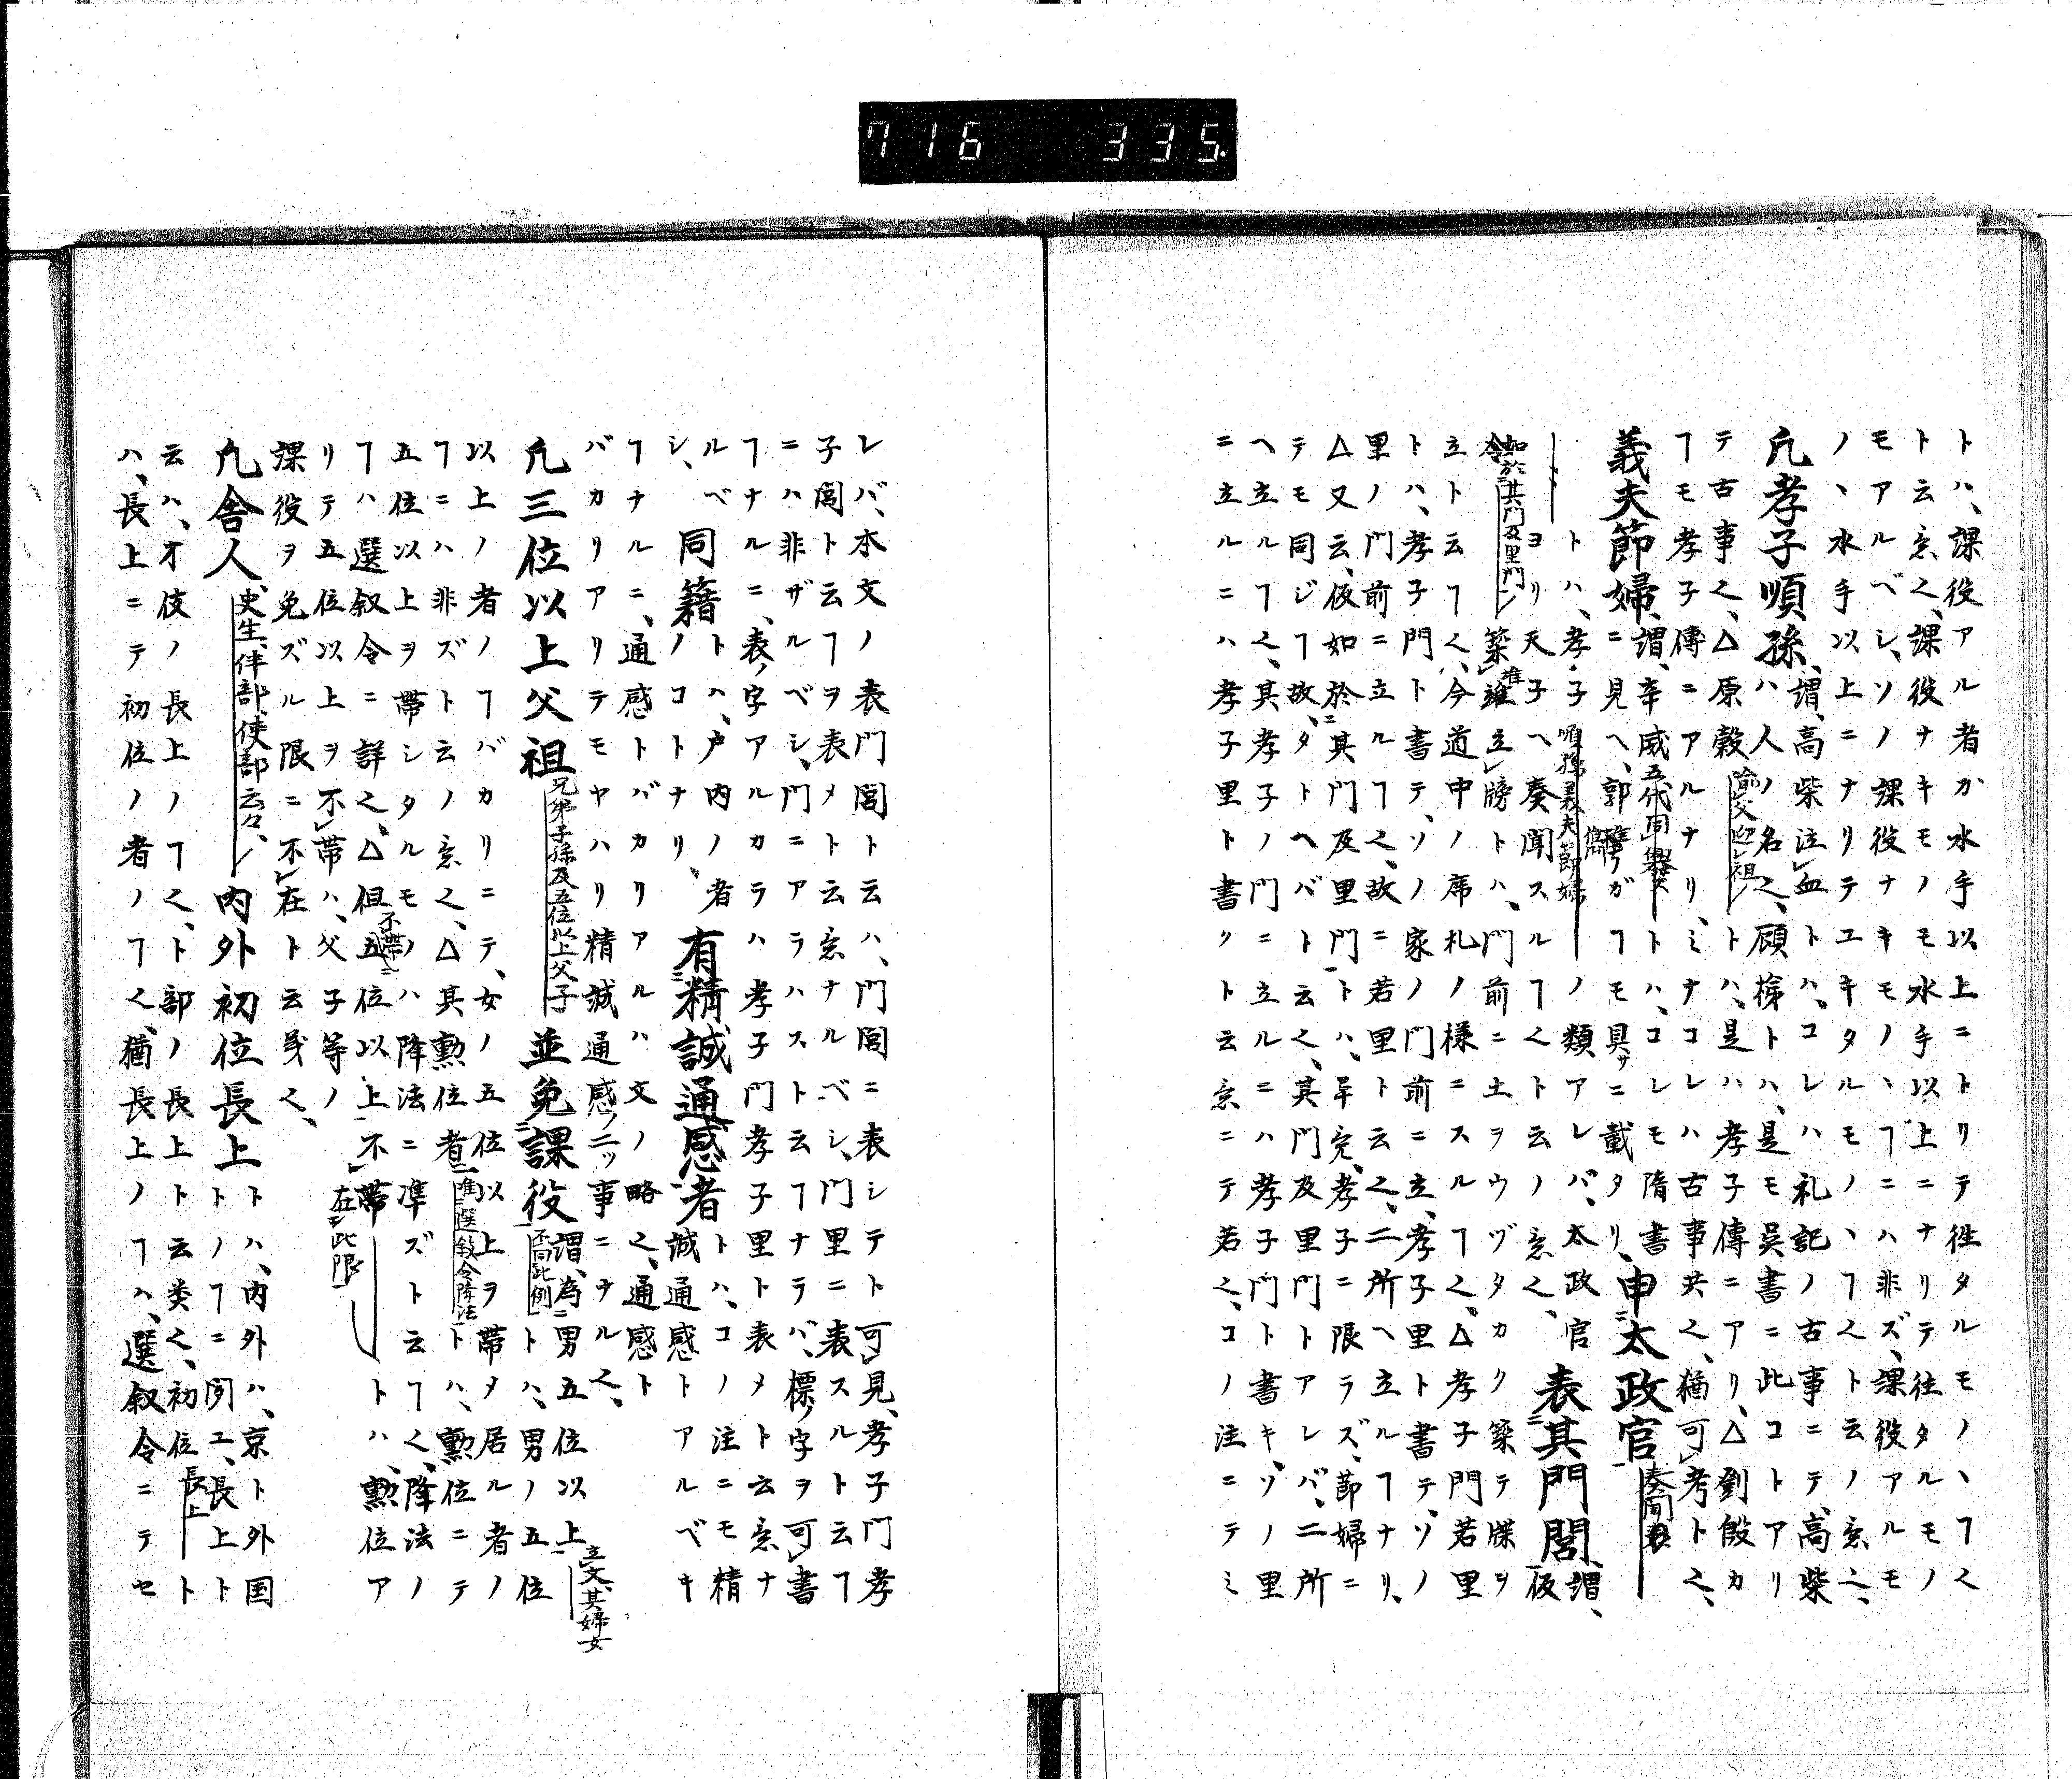 716 335.
トハ、課役アル者カ水手以上ニトリテ徃タルモノヽヿ〱
ト云意〱、課役ナキモノモ水手以上ニナリテ徃タルモノ
モアルベシ、ソノ課役ナキモノヽヿニハ非ズ、課役アルモ
ノヽ水手以上ニナリテユキタルモノヽヿ〱ト云ノ意〱、
凢孝子順孫、謂、高柴注レ血トハ、コレハ礼記ノ古事ニテ、高柴
ハ人ノ名〱、顧悌トハ、是モ呉書ニ此コトアリ
テ古事〱、△原穀喩父迎レ祖トハ、是ハ孝子傳ニアリ、△劉殷カ
ヿモ孝子傳ニアルナリ、ミナコレハ古事共〱、猶可レ考ト〱、
義夫節婦、謂、辛威五代同爨トハ、コレモ隋書
ニ見ヘ、郭雋ガヿモ具サニ載タリ、申二太政官一奏聞
トハ、孝子順孫義夫節婦ノ類アレバ、太政官
ヨリ天子ヘ奏聞スルヿ〱ト云ノ意〱、表二其門閭一、謂、仮
令如於二其門及里門一築レ堆立レ牓トハ、門前ニ土ヲウヅタカク築テ牒ヲ
立ト云ヿ〱、今道中ノ席札ノ様ニスルヿ〱、△孝子門若里
トハ、孝子門ト書テ、ソノ家ノ門前ニ立、孝子里ト書テ、ソノ
里ノ門前ニ立ルヿ〱、故ニ若里ト云〱、二所ヘ立ルヿナリ、
△又云、仮如於二其門及里門一トハ、孝子ニ限ラズ、節婦ニ
テモ同ジヿ故、タトヘバト云〱、其門及里門トアレバ、二所
ヘ立ルヿ〱、其孝子ノ門ニ立ルニハ孝子門ト書キ、ソノ里
ニ立ルニハ孝子里ト書クト云意ニテ若〱、コノ注ニテミ
レバ、本文ノ表門閭ト云ハ、門閭ニ表シテト可レ見、孝子門孝
子閭ト云ヿヲ表メト云意ナルベシ、門里ニ表スルト云ヿ
ニハ非ザルベシ、門ニアラハスト云ヿナラバ、標ノ字ヲ可レ書
ヿナルニ、表ノ字アルカラハ孝子門孝子里ト表メト云意ナ
ルベシ、同籍トハ、戸内ノ者ノコトナリ、有二精誠通感者一トハ、コノ注ニモ精
誠通感トアルベキ
ヿナルニ、通感トバカリアルハ文ノ略〱、通感ト
バカリアリテモヤハリ精誠通感ノ二ッ事ニナル〱、
凢三位以上父祖兄弟子孫及五位以上父子並免二課役一、謂、為二男五位以上一立文、其婦女
不同此例トハ、男ノ五位
以上ノ者ノヿバカリニテ、女ノ五位以上ヲ帯メ居ル者ノ
ヿニハ非ズト云ノ意〱、△其勲位者准二選叙令降法一トハ、勲位ニテ
五位以上ヲ帯シタルモノハ降法ニ準ズト云ヿ〱、降法ノ
ヿハ選叙令ニ詳〱、△但不帯二五位以上一不レ帯在二此限一トハ、勲位ア
リテ五位以上ヲ不レ帯ハ、父子等ノ
課役ヲ免ズル限ニ不レ在ト云義〱、
凢舎人、史生、伴部、使部云々、内外初位長上トハ、内外ハ、京ト外国
トノヿニ聞エ、長上ト
云ハ、才伎ノ長上ノヿ〱、ト部ノ長上ト云类〱、初位長上ト
ハ、長上ニテ初位ノ者ノヿ〱、猶長上ノヿハ、選叙令ニテセ